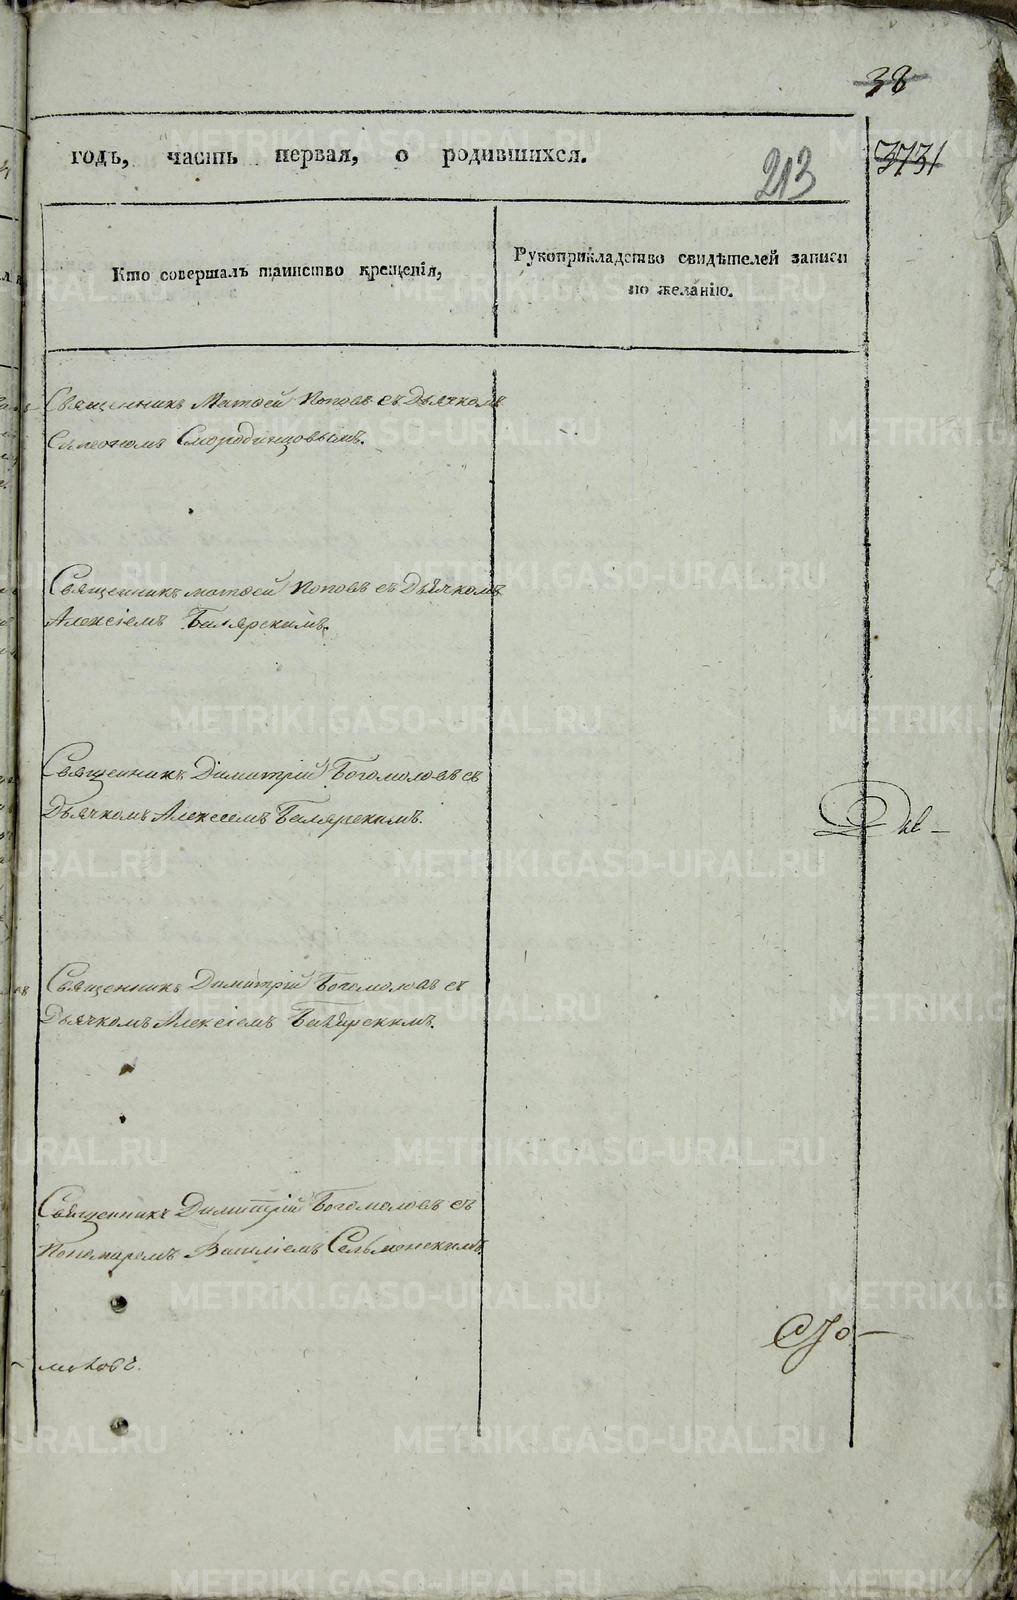 38
годъ, часть первая, о родившихся.
3731
213
Кто совершалъ таинство крещенія,
Рукоприкладство свидѣтелей записи
по желанію.
Священникъ Матѳей Поповъ съ Дьячкомъ
Симеономъ Смородинцовымъ.
Священникъ Матѳей Поповъ съ Дьячкомъ
Алексіемъ Билярскимъ.
Священникъ Димитрій Богомоловъ съ
Дьячкомъ Алексеемъ Билярскимъ.
Священникъ Димитрій Богомоловъ съ
Дьячкомъ Алексіемъ Билярскимъ.
Священникъ Димитрій Богомоловъ съ
Пономаремъ Василіемъ Сельменскимъ.
METRIKI.GASO-URAL.RU